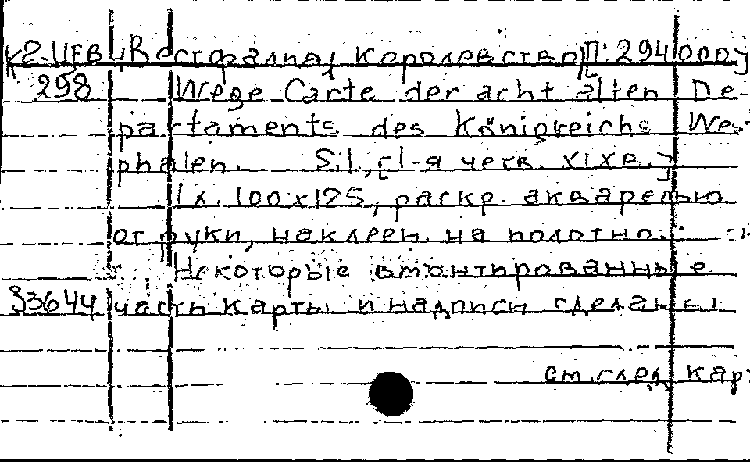 К2-ЦЕВ [Вестфалия, Королевство] [1:294 000]
298 Wege Carte der acht alten De-
partaments des Königreichs Wes-
phalen. S.l., [1-я четв. XIX в.]
1 л. 100x125, раскр. акварелью
от руки, наклеен на полотно.
Некоторые вмонтированные
33644 часть карты и надписи сделаны
см. след. кар